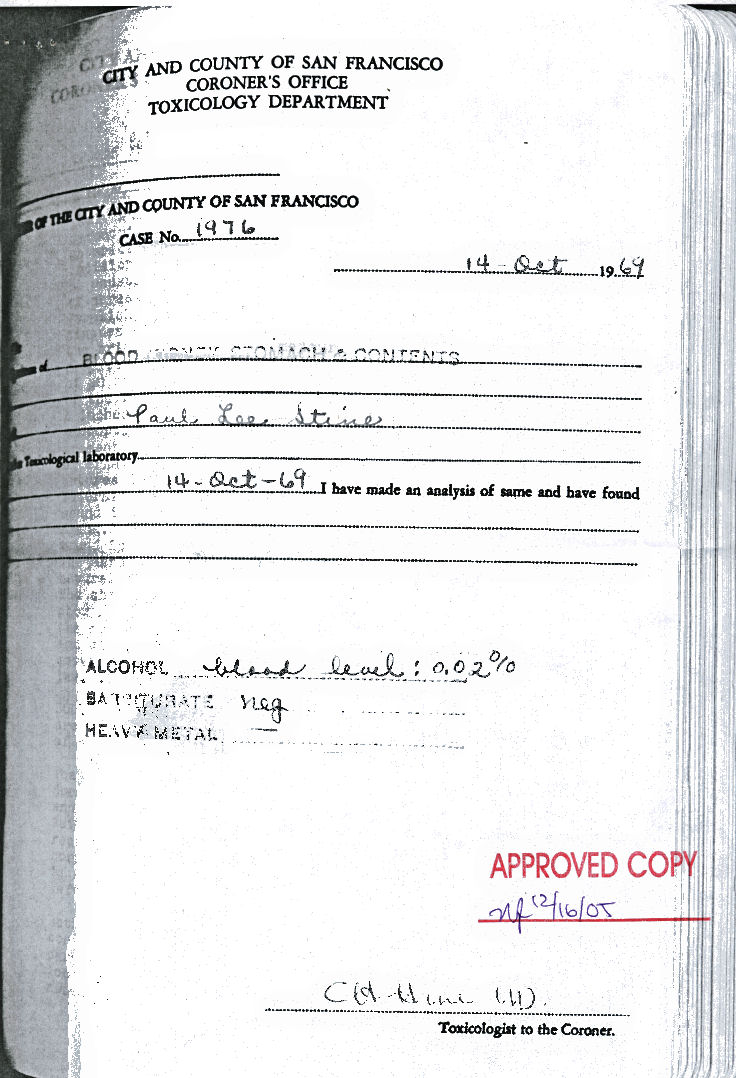 CITY AND COUNTY OF SAN FRANCISCO
CORONER'S OFFICE
TOXICOLOGY DEPARTMENT
OF THE CITY AND COUNTY OF SAN FRANCISCO
CASE No. 1976
14-Oct 1969
of BLOOD KIDNEY STOMACH & CONTENTS
Paul Lee Stine
Toxicological laboratory
14-Oct-69 I have made an analysis of same and have found
ALCOHOL blood level: 0.02%
BARBITURATE neg
HEAVY METAL —
APPROVED COPY
12/16/05
Toxicologist to the Coroner.